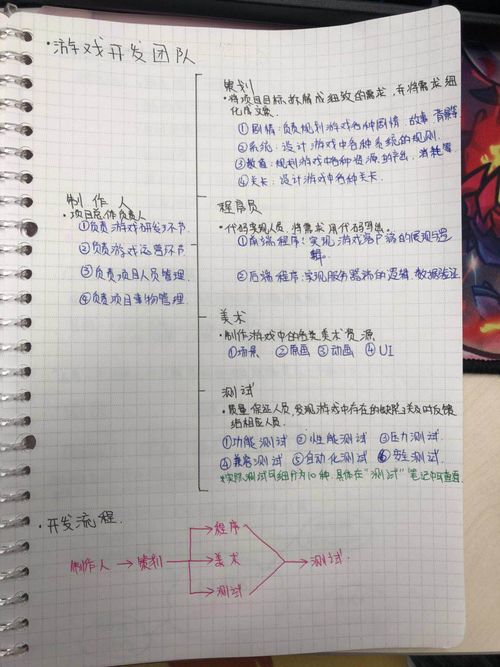 ·游戏开发团队
策划
·将项目目标拆解成细致的需求,并将需求细
化成文案.
①剧情:负责规划游戏各种剧情、故事、背景等
②系统:设计游戏中各种系统的规则.
③数值:规划游戏中各种资源的产出、消耗等
④关卡:设计游戏中各种关卡.
制作人
·项目总体负责人
①负责游戏研发环节
②负责游戏运营环节
③负责项目人员管理
④负责项目事物管理
程序员
·代码实现人员,将需求用代码写出.
①前端程序:实现游戏客户端的展现与逻
辑.
②后端程序:实现服务器端的逻辑、数据验证
美术
·制作游戏中的各类美术资源
①场景 ②原画 ③动画 ④UI
测试
·质量保证人员,发现游戏中存在的缺陷,及时反馈
给相应人员.
①功能测试 ②性能测试 ③压力测试
④兼容测试 ⑤自动化测试 ⑥ 测试.
*实际测试可细分为10种,具体在“测试”笔记中可查看
·开发流程.
制作人 → 策划 → 程序
美术
测试 → 测试.